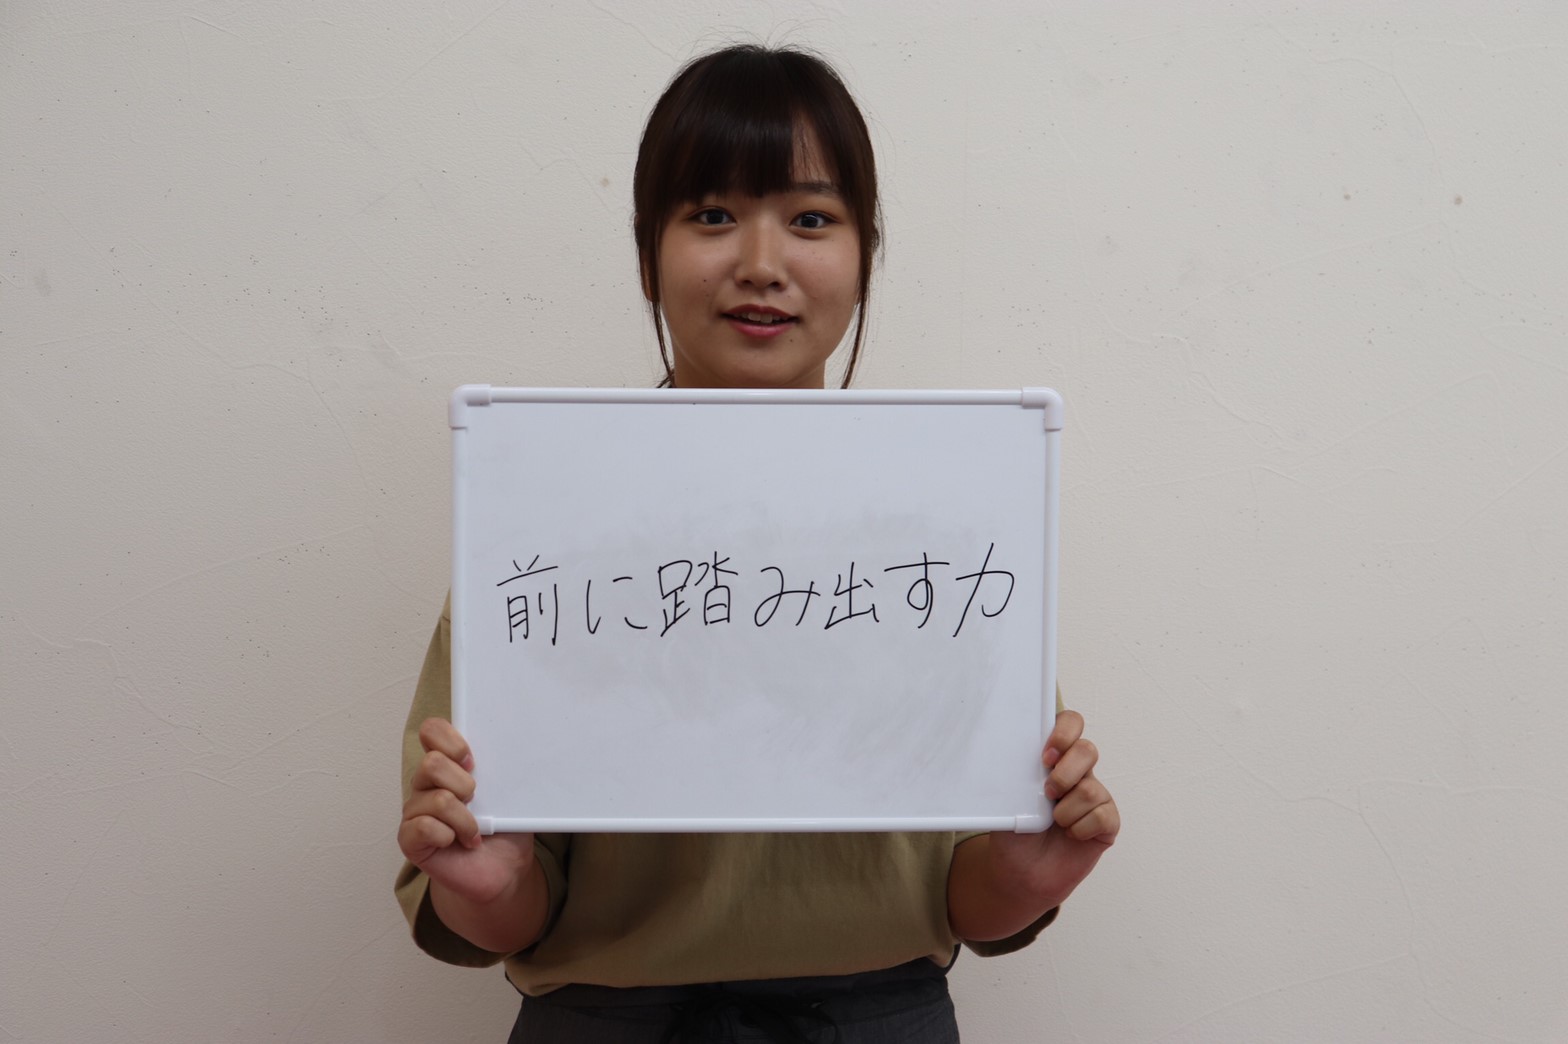 前に踏み出す力